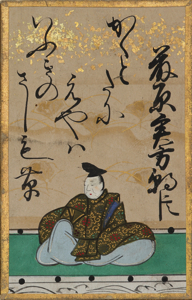 藤原実方朝臣
かくとたに
えやハ
いふきの
さしも草